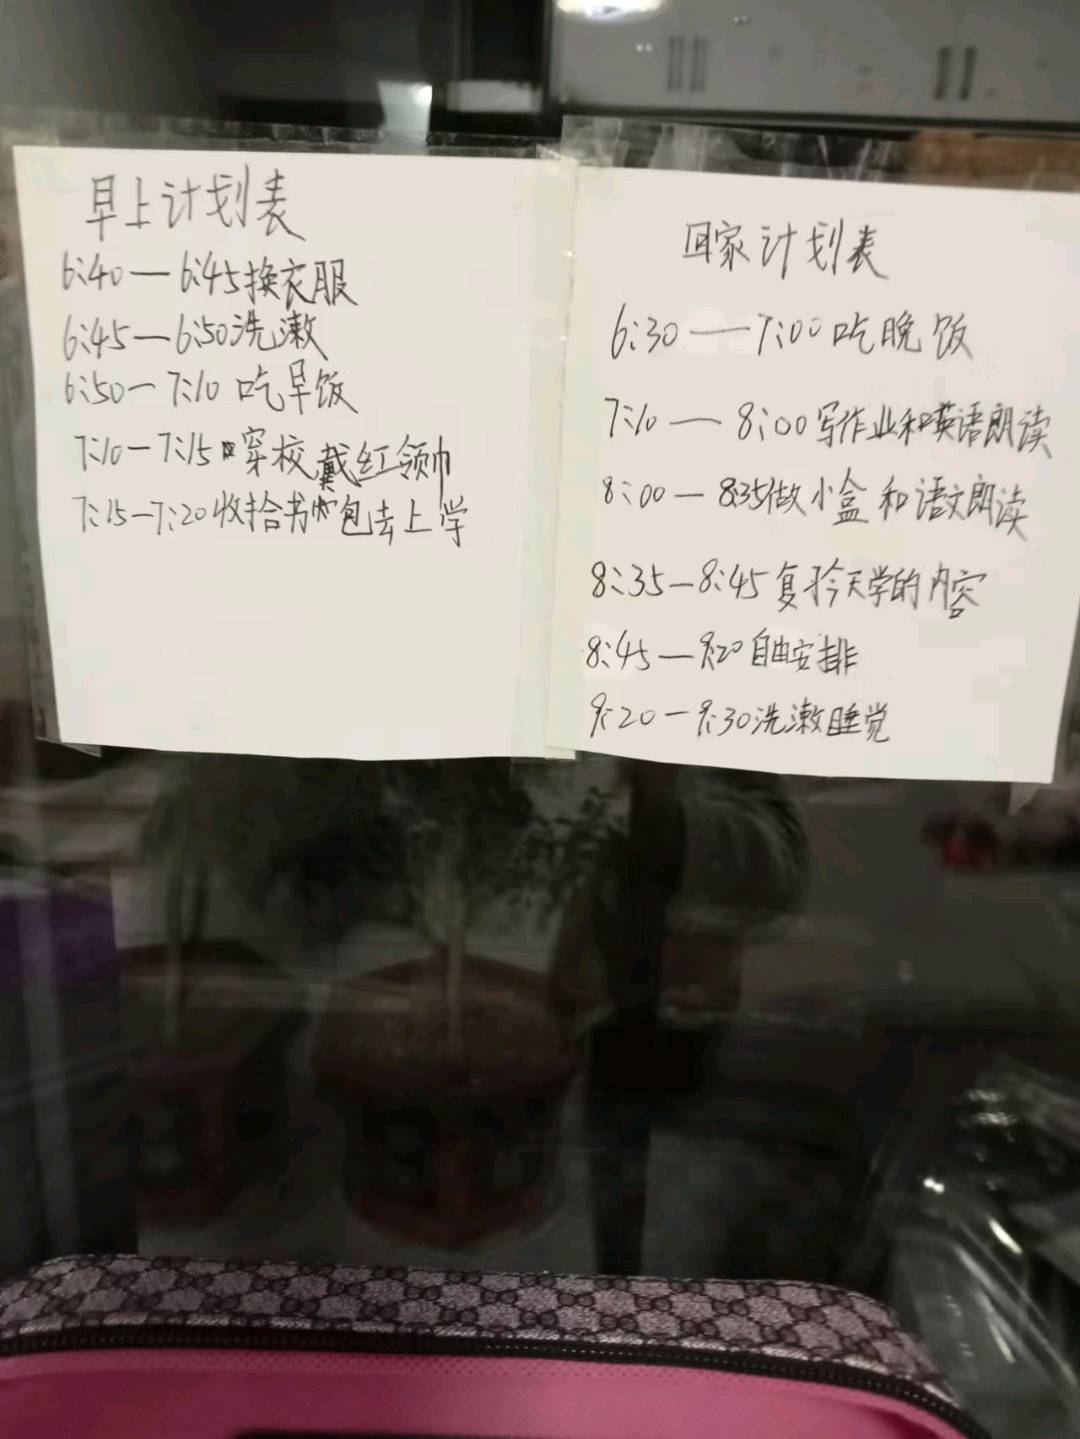 早上计划表
6:40—6:45换衣服
6:45—6:50洗漱
6:50—7:10吃早饭
7:10—7:15穿校戴红领巾
7:15—7:20收拾书包去上学
回家计划表
6:30—7:00吃晚饭
7:10—8:00写作业和英语朗读
8:00—8:35做小盒和语文朗读
8:35—8:45复习今天学的内容
8:45—9:20自由安排
9:20—9:30洗漱睡觉